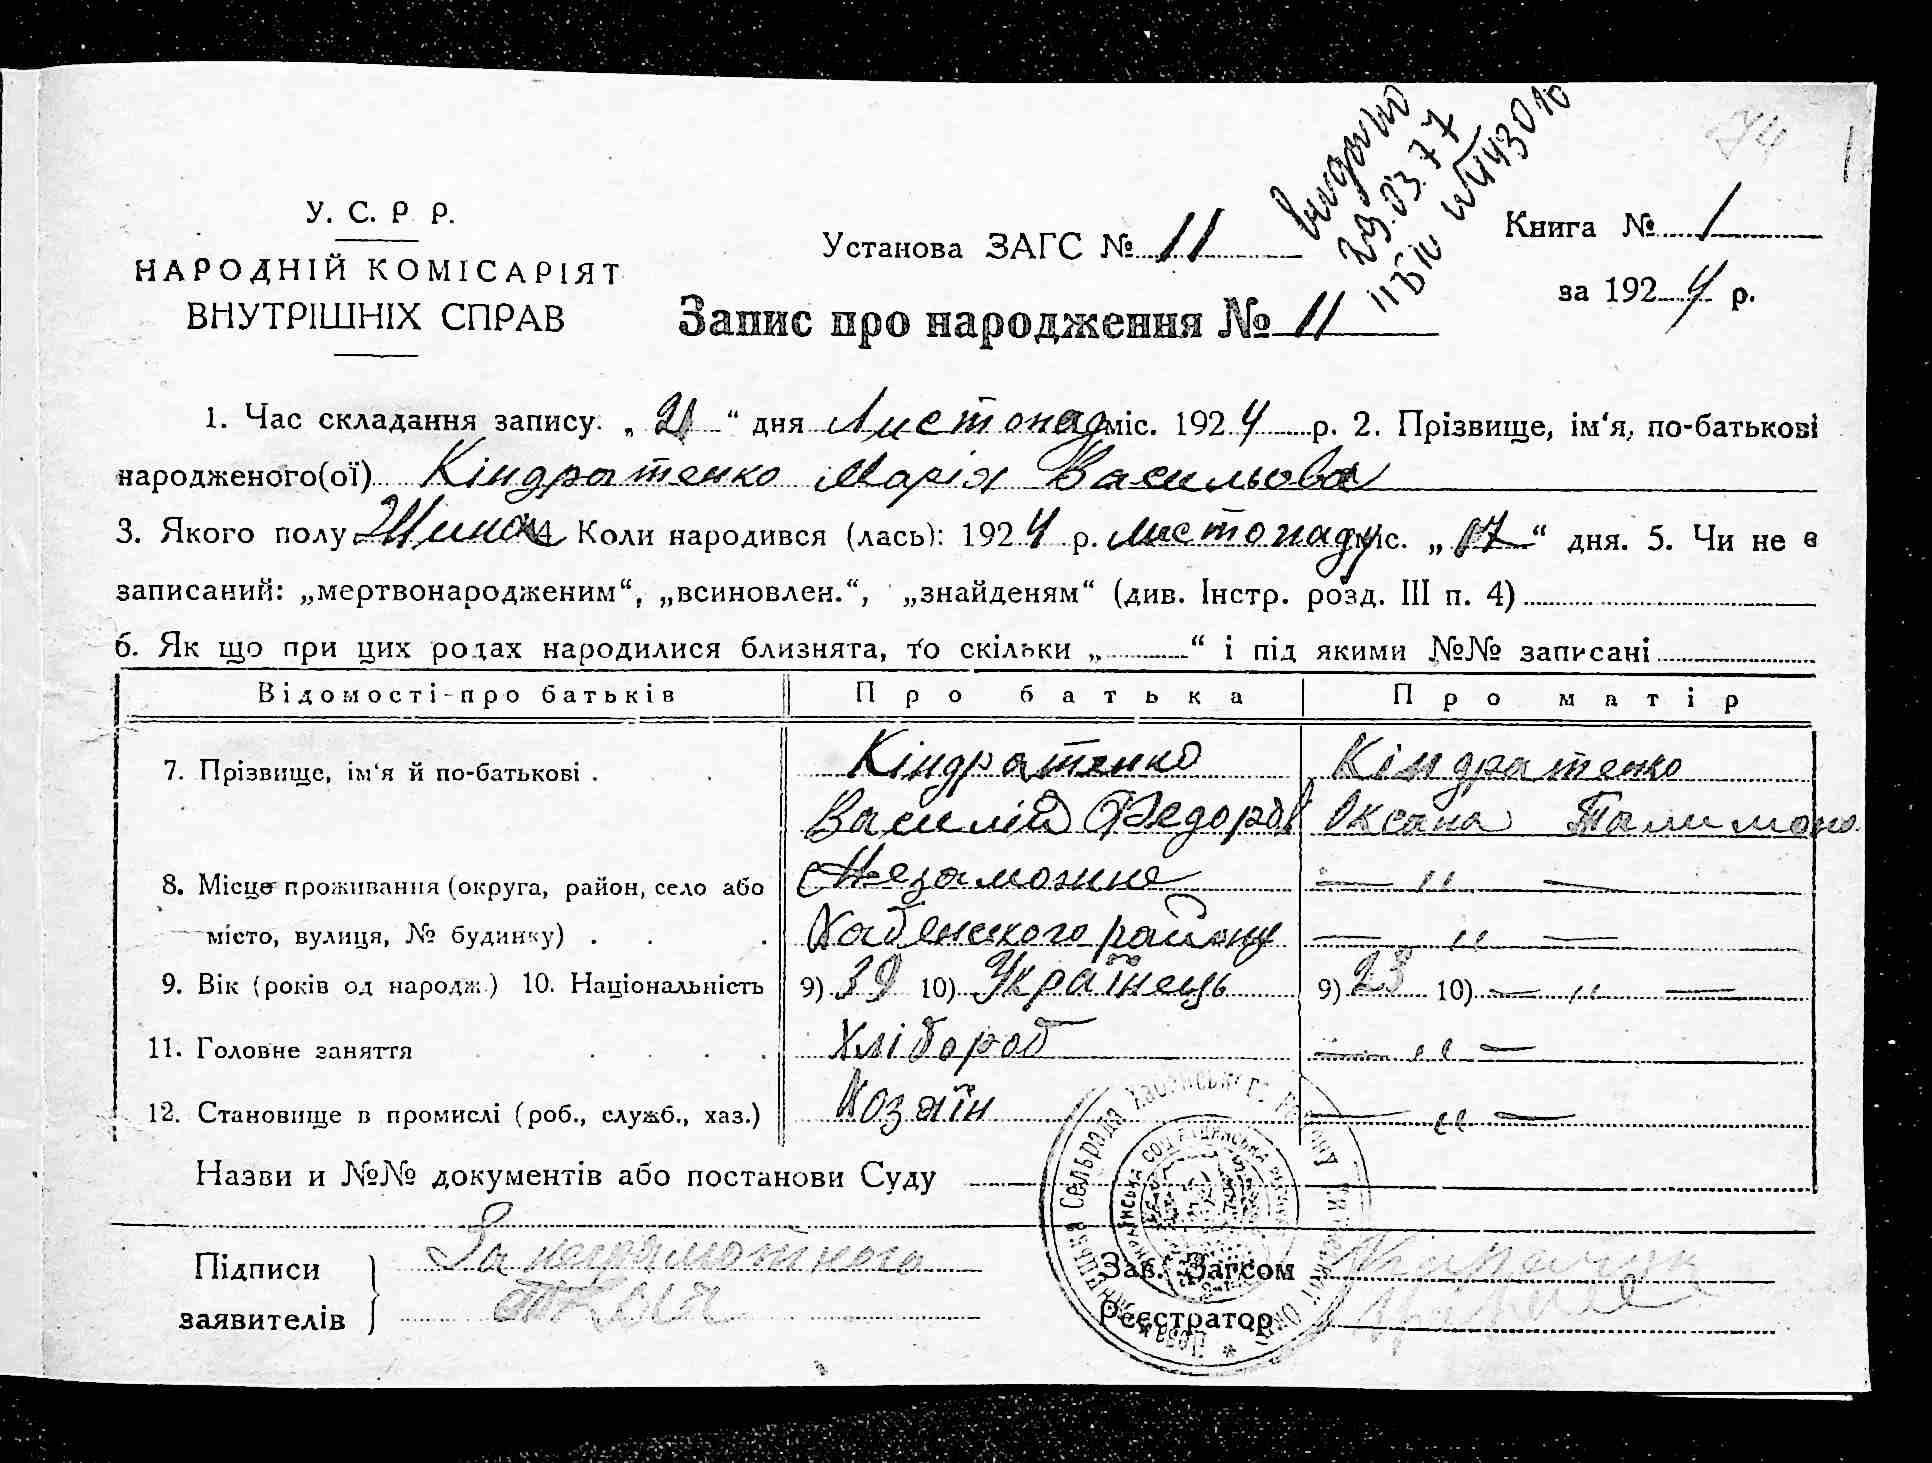 74
видано
29.03.77
ІІБК №443010
У. С. Р Р.
НАРОДНІЙ КОМІСАРІЯТ
ВНУТРІШНІХ СПРАВ
Установа ЗАГС № 11
Книга № 1
за 1924 р.
Запис про народження № 11
1. Час складання запису. „ 21 “ дня Листопад міс. 1924 р. 2. Прізвище, ім‘я, по-батькові
народженого(ої) Кіндратенко Марія Васильова
3. Якого полу Жіноч 4 Коли народився (лась): 1924 р. листопаду міс. „ 07 “ дня. 5. Чи не є
записаний: „мертвонародженим“, „всиновлен.“, „знайденям“ (див. Інстр. розд. III п. 4)
6. Як що при цих родах народилися близнята, то скільки „ “ і під якими №№ записані
Відомості про батьків Про батька Про матір
7. Прізвище, ім‘я й по-батькові . Кіндратенко Кіндратенко
Василій Федоров Оксана
8. Місце проживання (округа, район, село або Незаможне — „ —
місто, вулиця, № будинку) . Хабенского району — „ —
9. Вік (років од народж.) 10. Національність 9) 39 10) Українець 9) 23 10) — „ —
11. Головне заняття Хлібороб — „ —
12. Становище в промислі (роб., служб., хаз.) Хозяїн — „ —
Назви и №№ документів або постанови Суду
Підписи
заявителів
За неграмотного
Зав. Загсом
Реєстратор